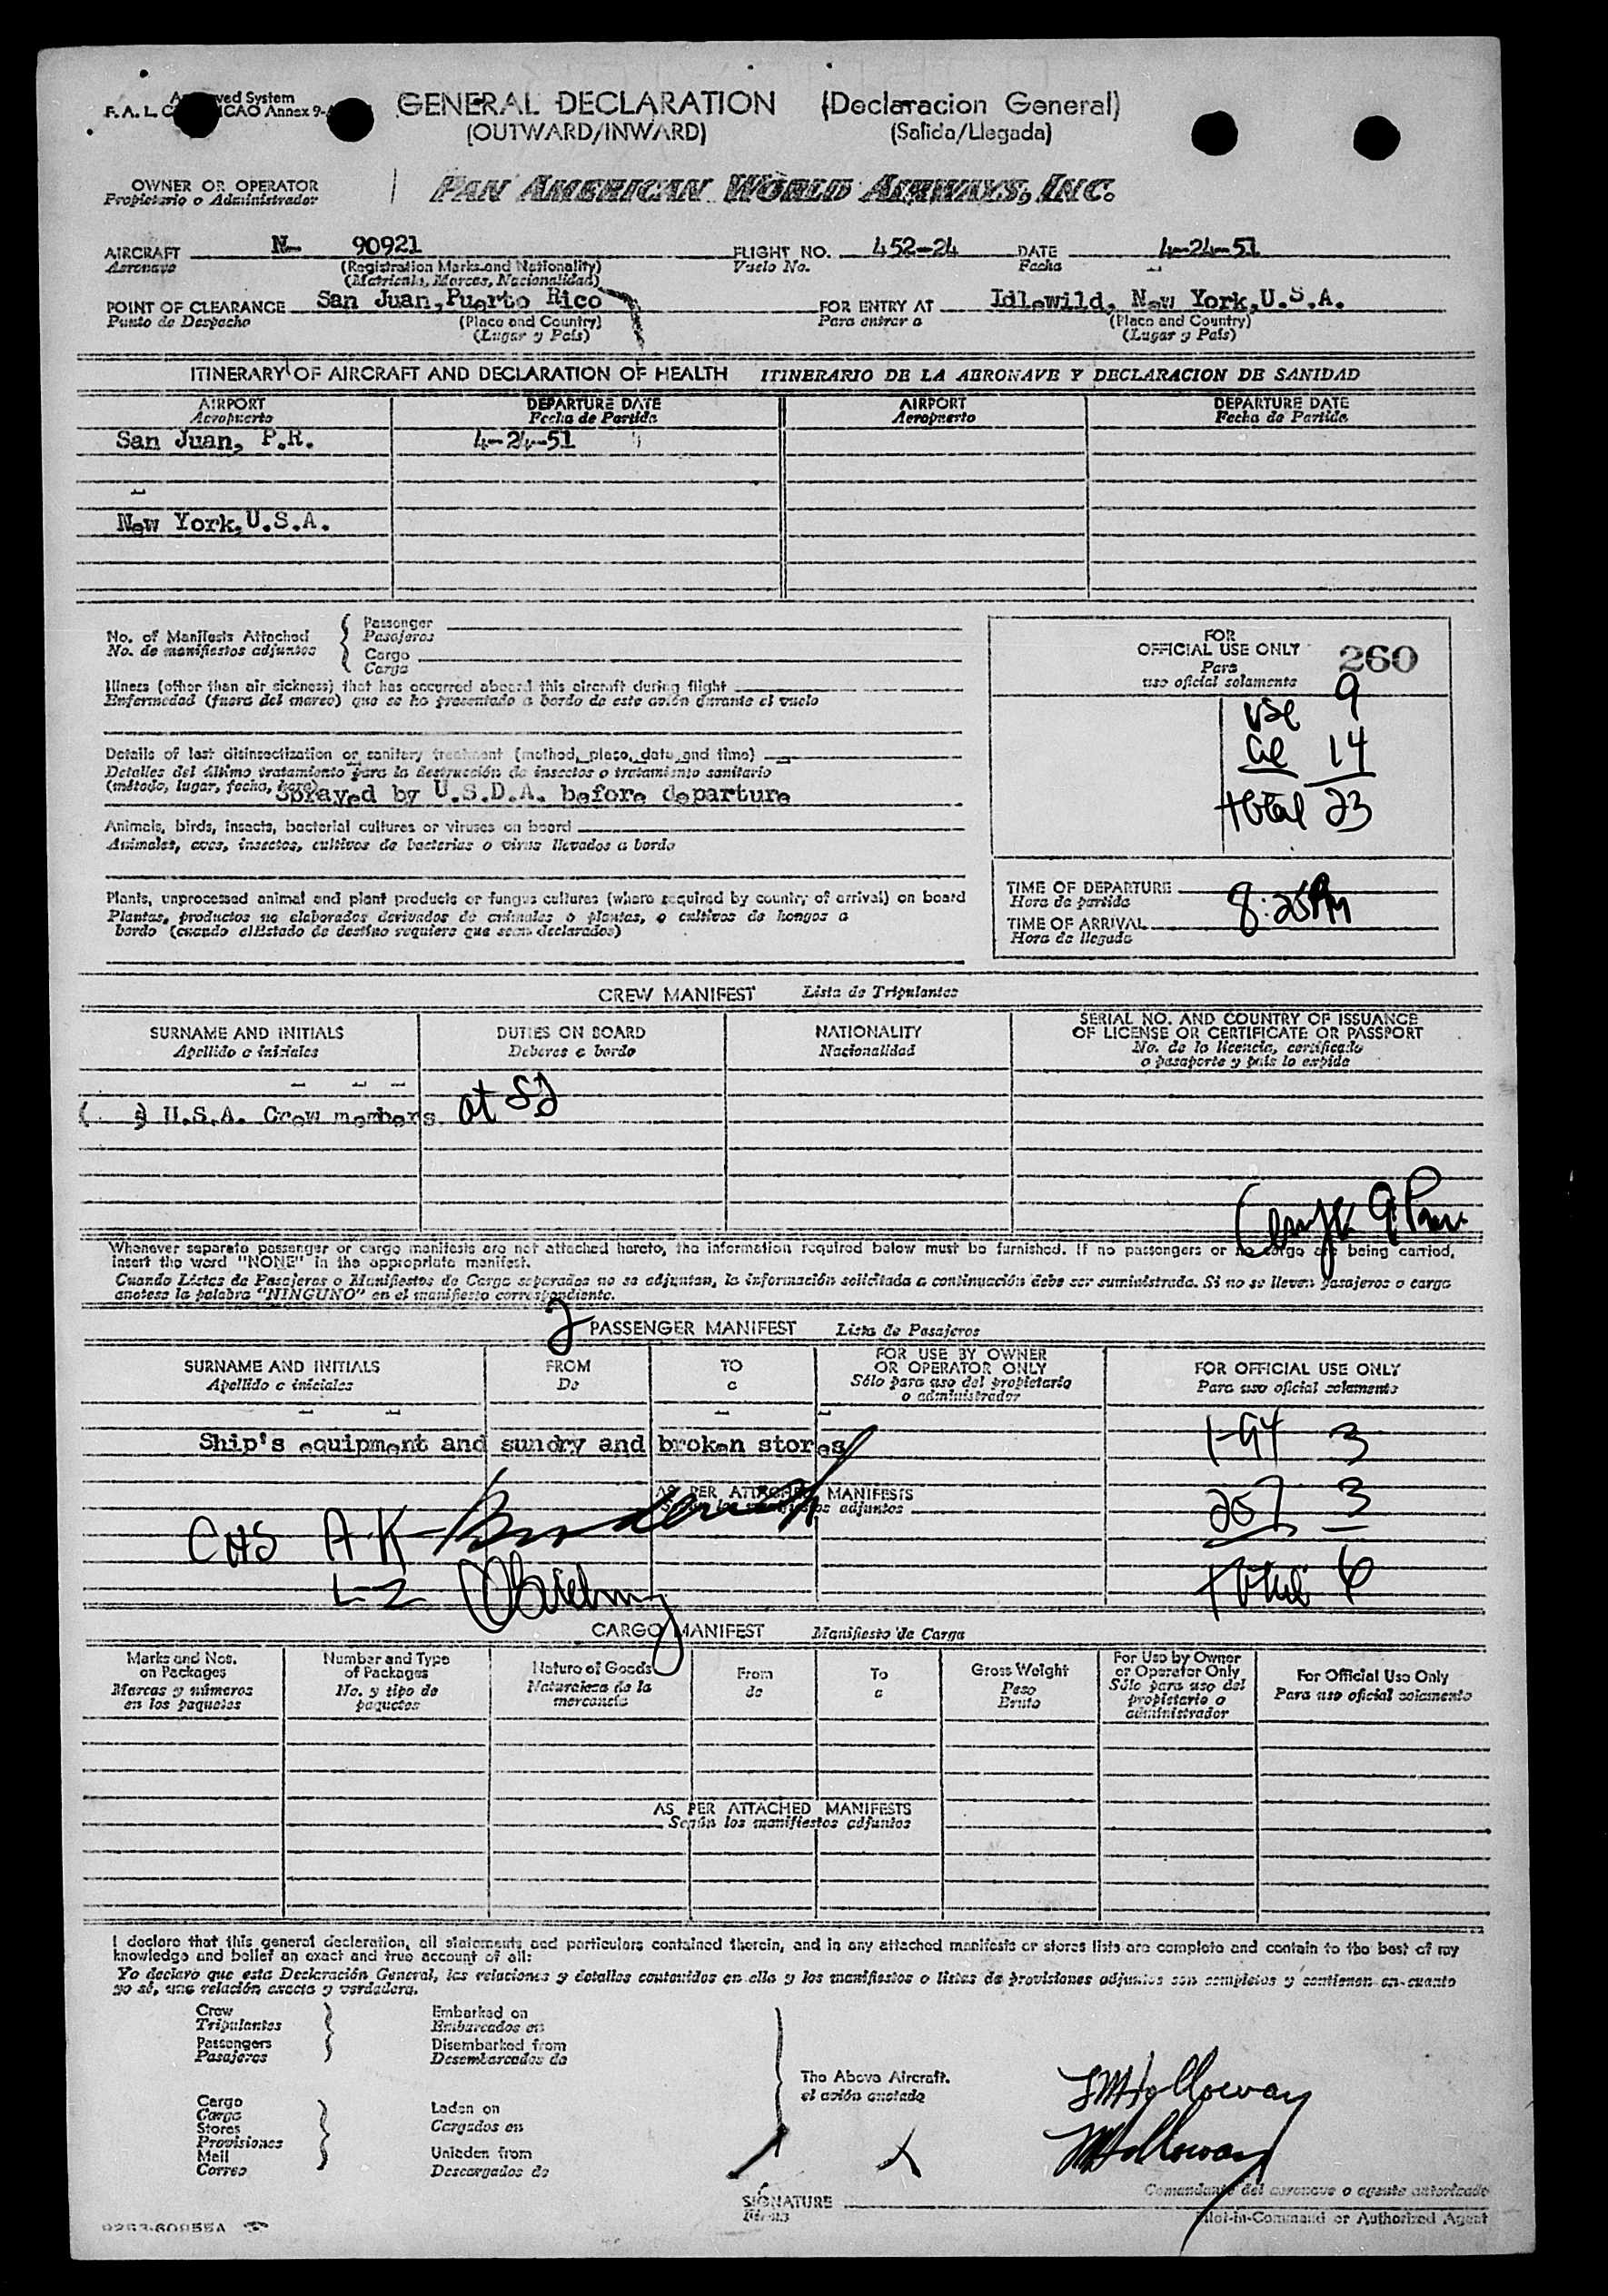 GENERAL DECLARATION (Declaracion General)
(OUTWARD/INWARD) (Salida/Llegada)
OWNER OR OPERATOR PAN AMERICAN WORLD AIRWAYS, INC.
Propietario o Administrador
AIRCRAFT N- 90921 FLIGHT NO. 452-24 DATE 4-24-51
Aeronave (Registration Marks and Nationality) Vuelo No. Fecha
(Matricula, Marcas, Nacionalidad)
POINT OF CLEARANCE San Juan, Puerto Rico FOR ENTRY AT Idlewild, New York, U.S.A.
Punto de Despacho (Place and Country) Para entrar a (Place and Country)
(Lugar y País) (Lugar y País)
ITINERARY OF AIRCRAFT AND DECLARATION OF HEALTH ITINERARIO DE LA AERONAVE Y DECLARACION DE SANIDAD
AIRPORT DEPARTURE DATE AIRPORT DEPARTURE DATE
Aeropuerto Fecha de Partida Aeropuerto Fecha de Partida
San Juan, P.R. 4-24-51
New York, U.S.A.
No. of Manifests Attached Passenger
No. de manifiestos adjuntos Pasajeros
Cargo
Carga
FOR
OFFICIAL USE ONLY 260
Para
uso oficial solamente
use 9
ae 14
total 23
Illness (other than air sickness) that has occurred aboard this aircraft during flight
Enfermedad (fuera del mareo) que se ha presentado a bordo de este avión durante el vuelo
Details of last disinsectization or sanitary treatment (method, place, date and time)
Detalles del último tratamiento para la destrucción de insectos o tratamiento sanitario
(método, lugar, fecha, hora) Sprayed by U.S.D.A. before departure
Animals, birds, insects, bacterial cultures or viruses on board
Animales, aves, insectos, cultivos de bacterias o virus llevados a bordo
Plants, unprocessed animal and plant products or fungus cultures (where required by country of arrival) on board
Plantas, productos no elaborados derivados de animales o plantas, o cultivos de hongos a
bordo (cuando el Estado de destino requiere que sean declarados)
TIME OF DEPARTURE
Hora de partida 8:25PM
TIME OF ARRIVAL
Hora de llegada
CREW MANIFEST Lista de Tripulantes
SURNAME AND INITIALS DUTIES ON BOARD NATIONALITY SERIAL NO. AND COUNTRY OF ISSUANCE
OF LICENSE OR CERTIFICATE OR PASSPORT
Apellido e iniciales Deberes a bordo Nacionalidad No. de la licencia, certificado
o pasaporte y país lo expide
( ) U.S.A. Crew members at SJ
Whenever separate passenger or cargo manifests are not attached hereto, the information required below must be furnished. If no passengers or no cargo are being carried,
insert the word "NONE" in the appropriate manifest.
Cuando Listas de Pasajeros o Manifiestos de Carga separados no se adjuntan, la información solicitada a continuación debe ser suministrada. Si no se lleven pasajeros o carga
anotese la palabra "NINGUNO" en el manifiesto correspondiente.
2 PASSENGER MANIFEST Lista de Pasajeros
SURNAME AND INITIALS FROM TO FOR USE BY OWNER
OR OPERATOR ONLY FOR OFFICIAL USE ONLY
Apellido e iniciales De a Sólo para uso del propietario
o administrador Para uso oficial solamente
Ship's equipment and sundry and broken stores
1-94 3
AS PER ATTACHED MANIFESTS
Según los manifiestos adjuntos
257 3
CHS A.K.
total 6
L-2
CARGO MANIFEST Manifiesto de Carga
Marks and Nos.
on Packages
Marcas y números
en los paquetes
Number and Type
of Packages
No. y tipo de
paquetes
Nature of Goods
Naturaleza de la
mercancia
From
de
To
a
Gross Weight
Peso
Bruto
For Use by Owner
or Operator Only
Sólo para uso del
propietario o
administrador
For Official Use Only
Para uso oficial solamente
AS PER ATTACHED MANIFESTS
Según los manifiestos adjuntos
I declare that this general declaration, all statements and particulars contained therein, and in any attached manifests or stores lists are complete and contain to the best of my
knowledge and belief an exact and true account of all:
Yo declaro que esta Declaración General, las relaciones y detalles contenidos en ella y los manifiestos o listas de provisiones adjuntos son completos y contienen en cuanto
yo sé, una relación exacta y verdadera.
Crew Embarked on
Tripulantes Embarcados en
Passengers Disembarked from
Pasajeros Desembarcados de
The Above Aircraft.
el avión anotado
Cargo Laden on
Carga Cargados en
Stores
Provisiones
Mail Unladen from
Correo Descargados de
JM Holloway
JM Holloway
SIGNATURE
Firma
Comandante del aeronave o agente autorizado
Pilot-in-Command or Authorized Agent